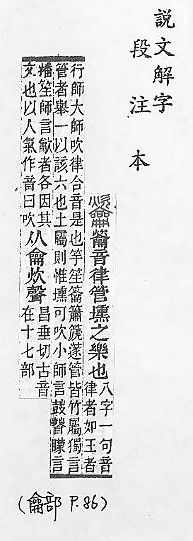 說文解字
段注本
龡 籥音律管壎之樂也八字一句音
律者如王者
行師大師吹律合音是也竽笙籥簫篪篴管皆竹屬獨言
管者舉一以該六也土屬則惟壎可吹小師言鼓瞽矇言
播笙師言龡者各因其
文也以人氣作音曰吹从龠炊聲昌垂切古音
在十七部
(龠部 P.86)